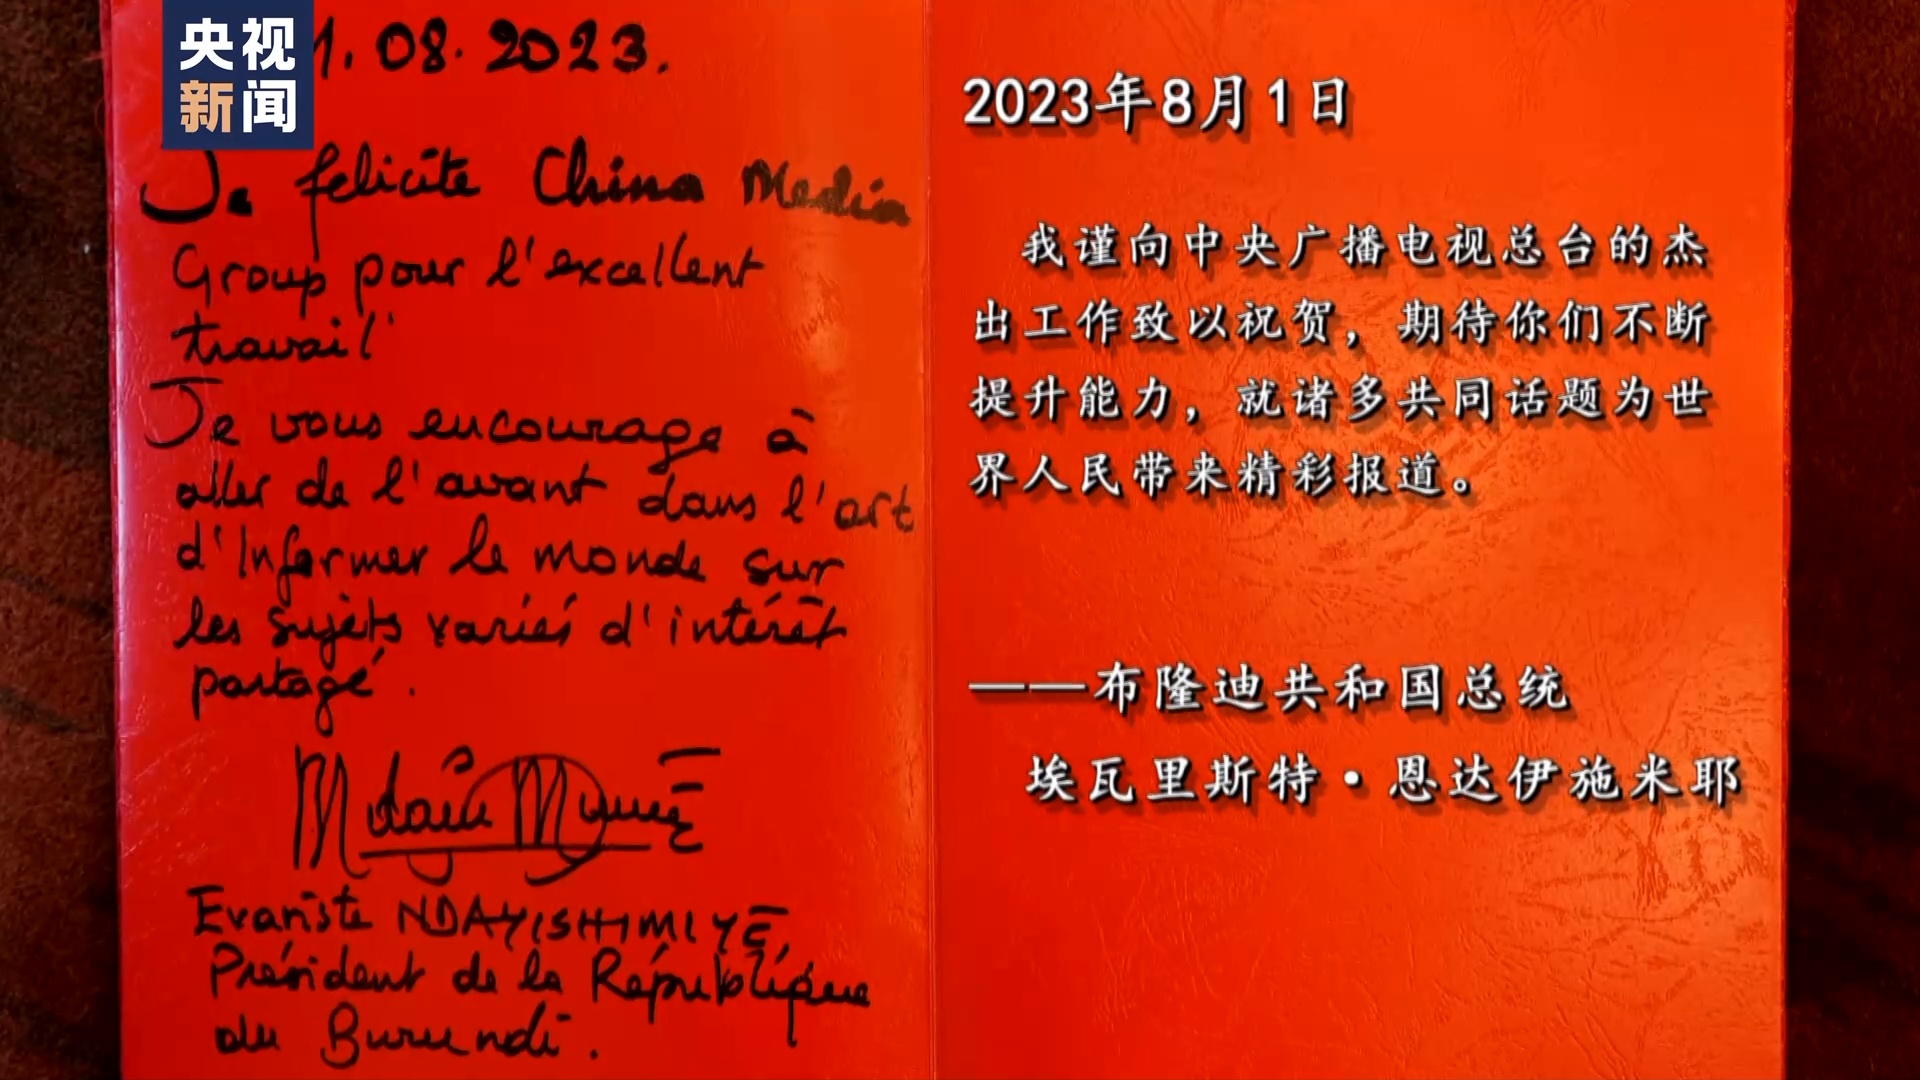 央视
新闻
1.08.2023.
Je félicite China Media
Group pour l'excellent
travail
Je vous encourage à
aller de l'avant dans l'art
d'Informer le monde sur
les sujets variés d'intérêt
partagé.
Evariste NDAYISHIMIYE
Président de la République
du Burundi.
2023年8月1日
我谨向中央广播电视总台的杰
出工作致以祝贺，期待你们不断
提升能力，就诸多共同话题为世
界人民带来精彩报道。
——布隆迪共和国总统
埃瓦里斯特·恩达伊施米耶